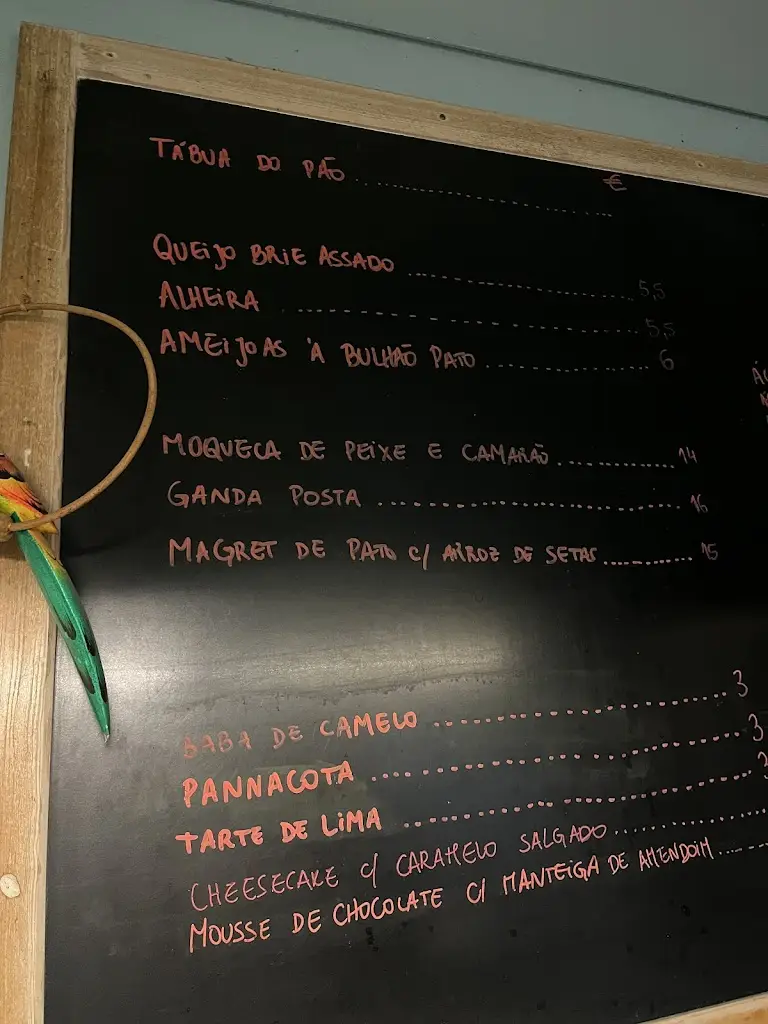 TÁBUA DO PÃO .......... €
QUEIJO BRIE ASSADO .......... 5,5
ALHEIRA .......... 5,5
AMEIJOAS À BULHÃO PATO .......... 6
MOQUECA DE PEIXE E CAMARÃO .......... 14
GANDA POSTA .......... 16
MAGRET DE PATO C/ ARROZ DE SETAS .......... 15
BABA DE CAMELO .......... 3
PANNACOTA .......... 3
TARTE DE LIMA .......... 3
CHEESECAKE C/ CARAMELO SALGADO ..........
MOUSSE DE CHOCOLATE C/ MANTEIGA DE AMENDOIM ..........